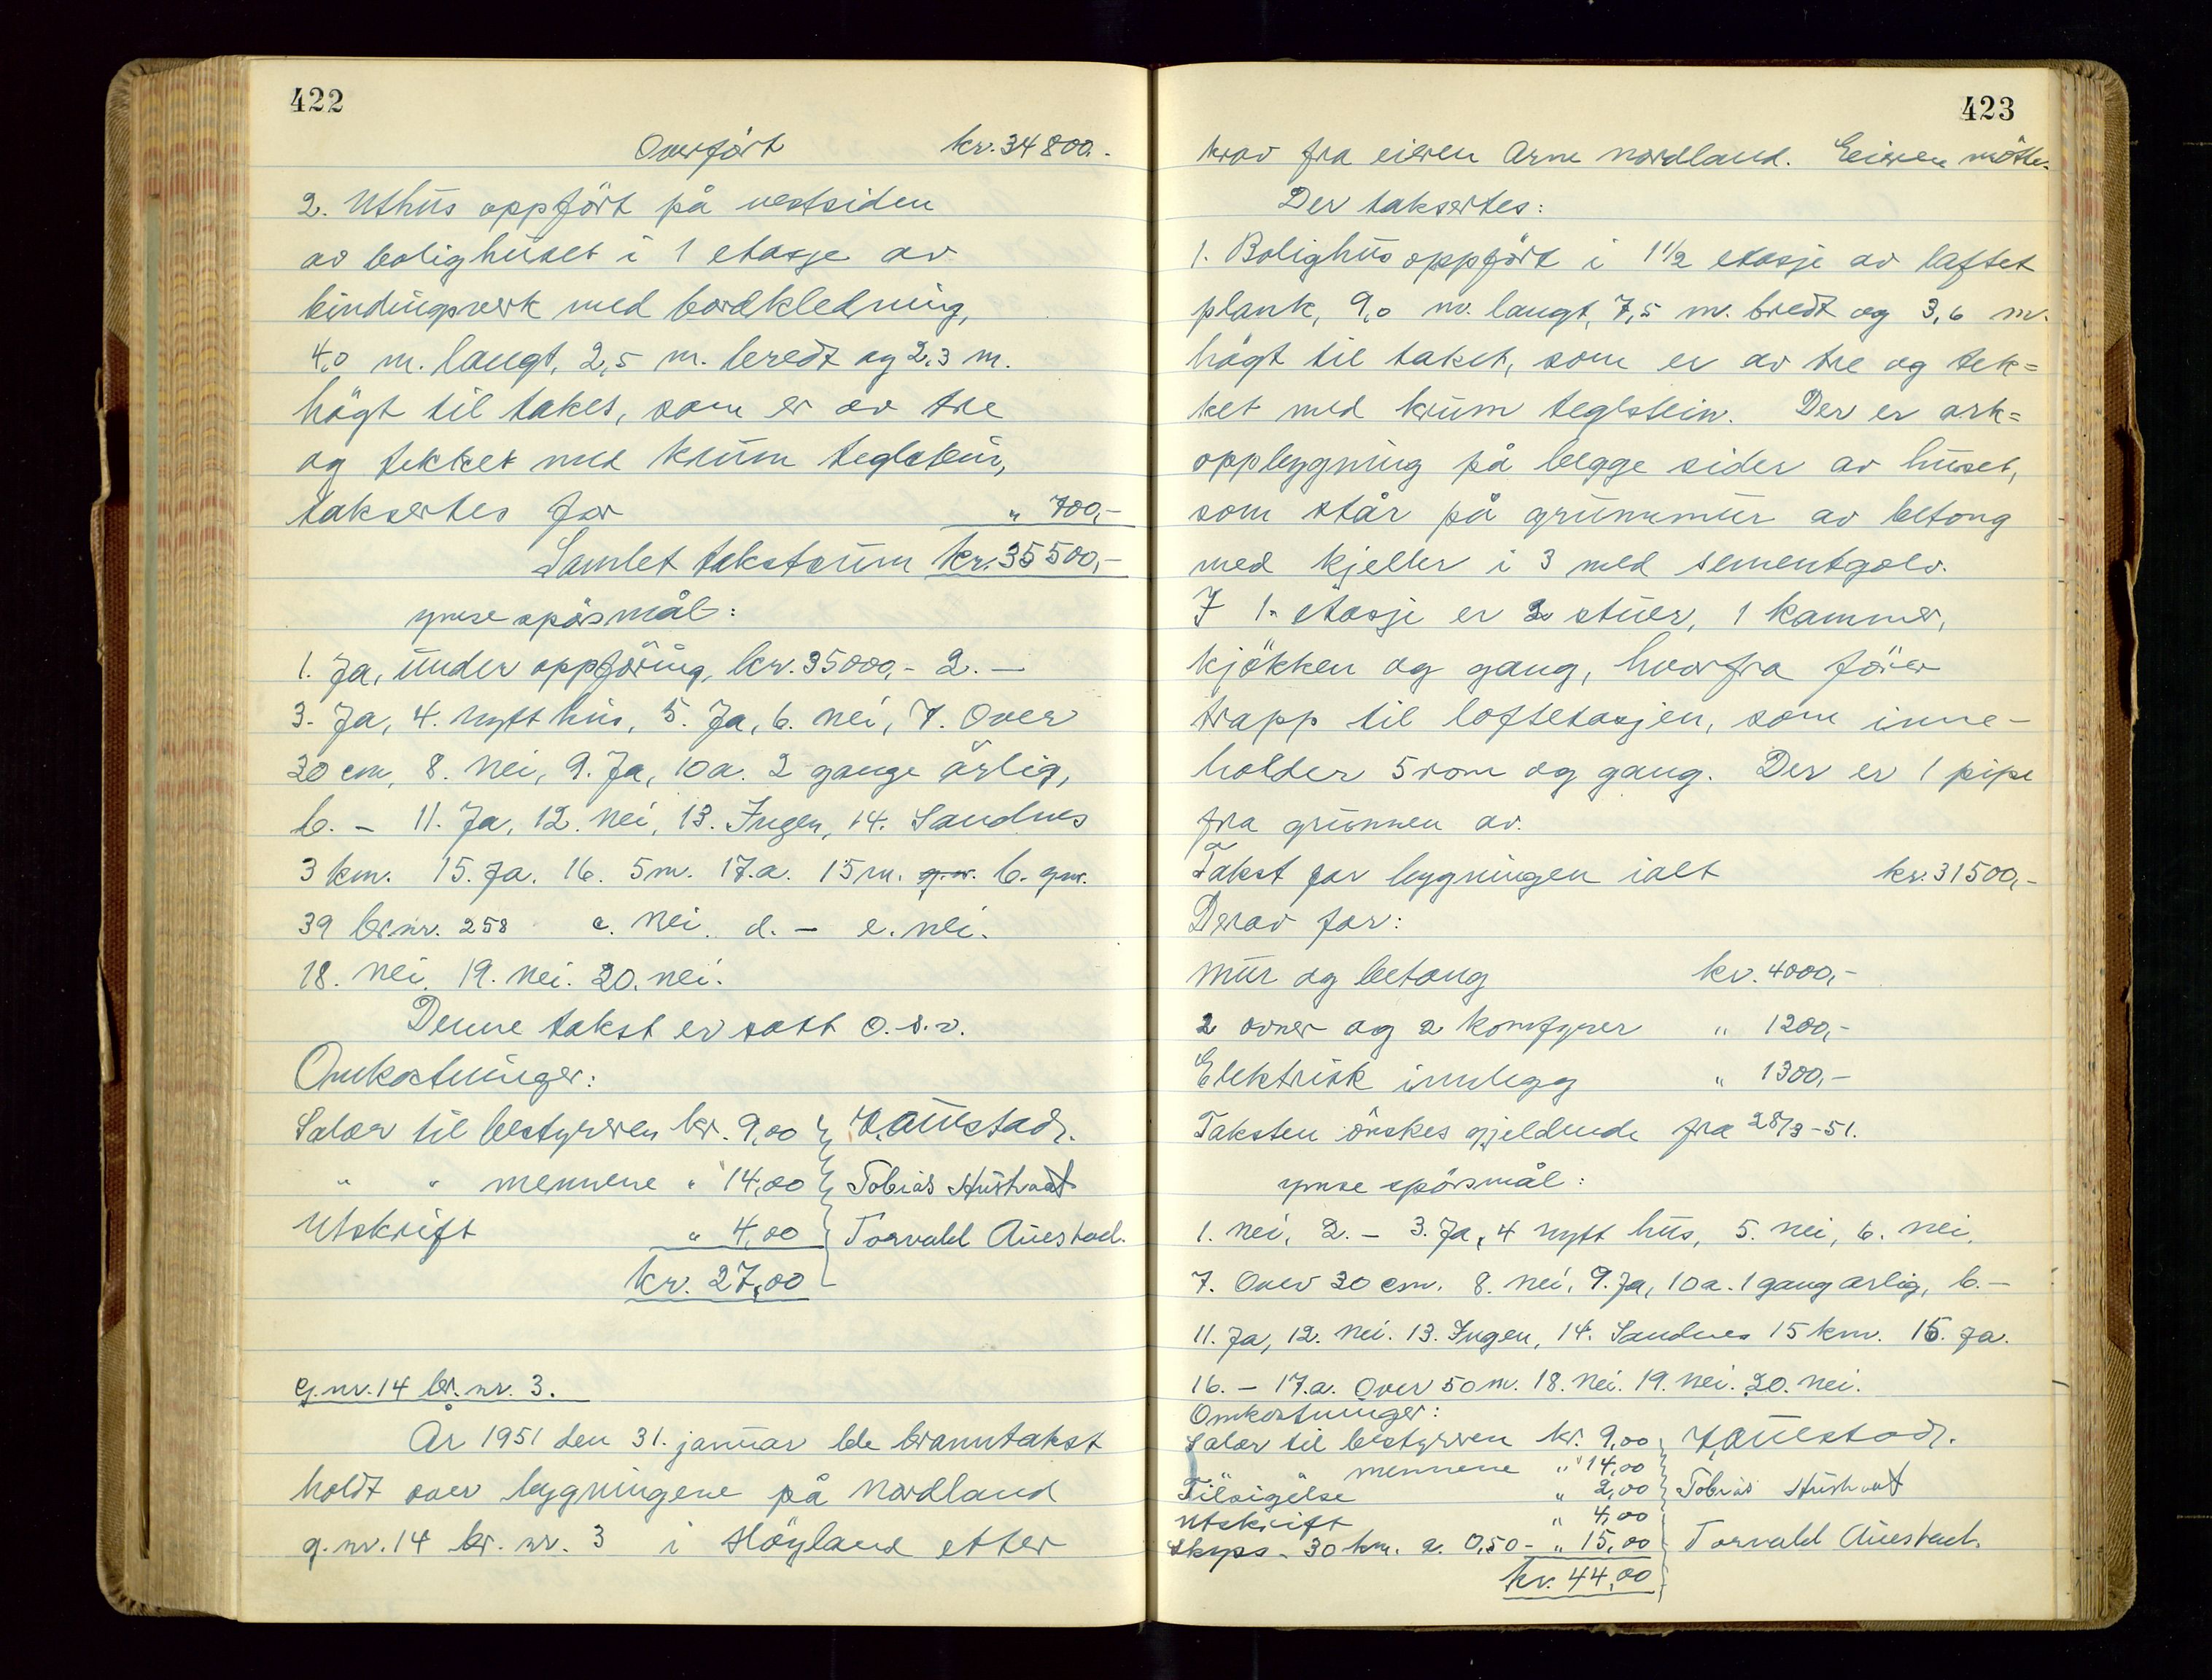 422
Overfört kr. 34 800.-
2. Uthus oppfört på vestsiden
av bolighuset i 1 etasje av
bindingsverk med bordkledning,
4,0 m. langt, 2,5 m. bredt og 2,3 m.
högt til taket, som er av tre
og tekket med krum teglstein,
taksertes for " 700,-
Samlet takstsum kr. 35 500,-
Ymse spörsmål:
1. Ja, under oppföring, kr. 35000,- 2. -
3. Ja, 4. nytt hus, 5. Ja, 6. nei, 7. Over
30 cm, 8. Nei, 9. Ja, 10 a. 2 gange årlig,
b. - 11. Ja, 12. nei, 13. Ingen, 14. Sandnes
3 km. 15. Ja. 16. 5 m. 17. a. 15 m. g.nr. b. gnr.
39 br.nr. 258 c. Nei. d. - e. nei.
18. Nei. 19. Nei. 20. nei.
Denne takst er satt o.s.v.
Omkostninger:
Salær til bestyreren kr. 9,00 Auestad.
" " mennene " 14,00 Tobias Hustvedt
Utskrift " 4,00 Torvald Auestad.
kr. 27,00
G.nr. 14 br. nr. 3.
År 1951 den 31. januar ble branntakst
holdt over bygningene på Nordland
g.nr. 14 br. nr. 3 i Höyland etter
423
krav fra eieren Arne Nordland. Eieren mötte.
Der taksertes:
1. Bolighus oppfört i 1 1/2 etasje av laftet
plank, 9,0 m. langt, 7,5 m. bredt og 3,6 m.
högt til taket, som er av tre og tek=
ket med krum teglstein. Der er ark=
oppbygning på begge sider av huset,
som står på grunnmur av betong
med kjeller i 3 med sementgolv.
I 1. etasje er 2 stuer, 1 kammer,
kjökken og gang, hvorfra förer
trapp til loftetasjen, som inne-
holder 5 rom og gang. Der er 1 pipe
fra grunnen av.
Takst for bygningen ialt kr. 31500,-
Derav for:
Mur og betong kr. 4000,-
2 ovner og 2 komfyrer " 1200,-
Elektrisk innlegg " 1300,-
Taksten önskes gjeldende fra 28/3-51.
Ymse spörsmål:
1. Nei, 2. - 3. Ja, 4 nytt hus, 5. nei, 6. nei.
7. Over 30 cm. 8. Nei, 9. Ja, 10 a. 1 gang årlig, b. -
11. Ja, 12. Nei. 13. Ingen, 14. Sandnes 15 km. 15. Ja.
16. - 17. a. Over 50 m. 18. Nei. 19. Nei. 20. Nei.
Omkostninger:
Salær til bestyreren kr. 9,00 Auestad.
mennene " 14,00
Tilsigelse " 2,00 Tobias Hustvedt
Utskrift " 4,00
Skyss - 30 km. a. 0,50 - " 15,00 Torvald Auestad.
kr. 44,00